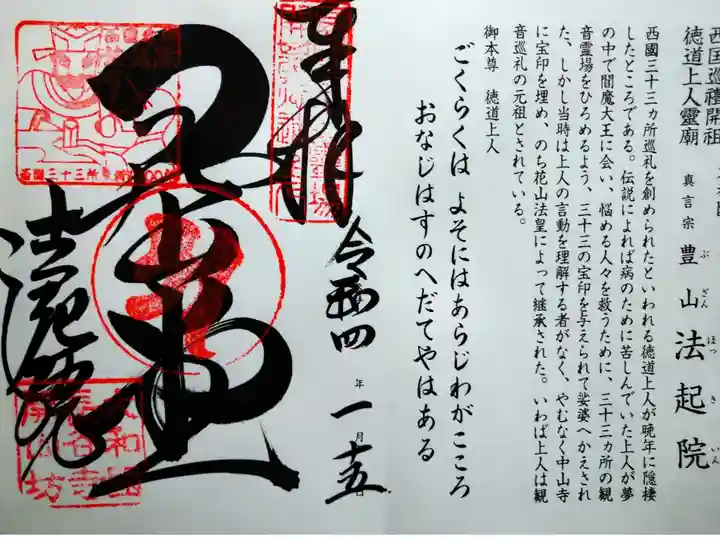 西国巡禮開祖
徳道上人靈廟
真言宗 豊山 法起院
ぶ ざん ほっ き いん
西國三十三ヵ所巡礼を創められたといわれる徳道上人が晩年に隠棲
したところである。伝説によれば病のために苦しんでいた上人が夢
の中で閻魔大王に会い、悩める人々を救うために、三十三ヵ所の観
音霊場をひろめるよう、三十三の宝印を与えられて娑婆へかえされ
た、しかし当時は上人の言動を理解する者がなく、やむなく中山寺
に宝印を埋め、のち花山法皇によって継承された。いわば上人は観
音巡礼の元祖とされている。
御本尊 徳道上人
ごくらくは よそにはあらじわがこころ
おなじはすのへだてやはある
奉拝
令和四年一月十五
法起院
西國三十三所
大和國
長谷寺
開山坊